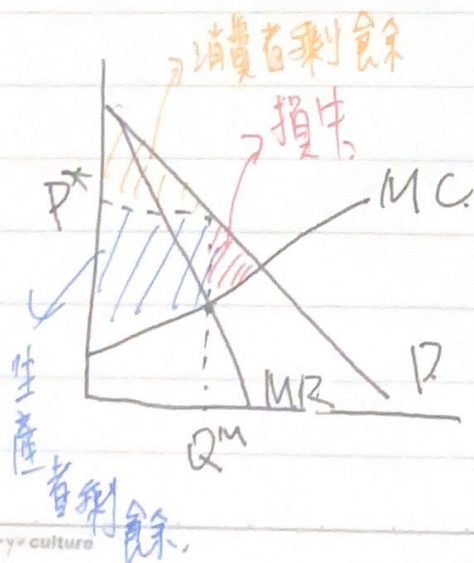 消費者剩餘
損失
P*
MC
D
MR
Q^M
生產者剩餘
culture